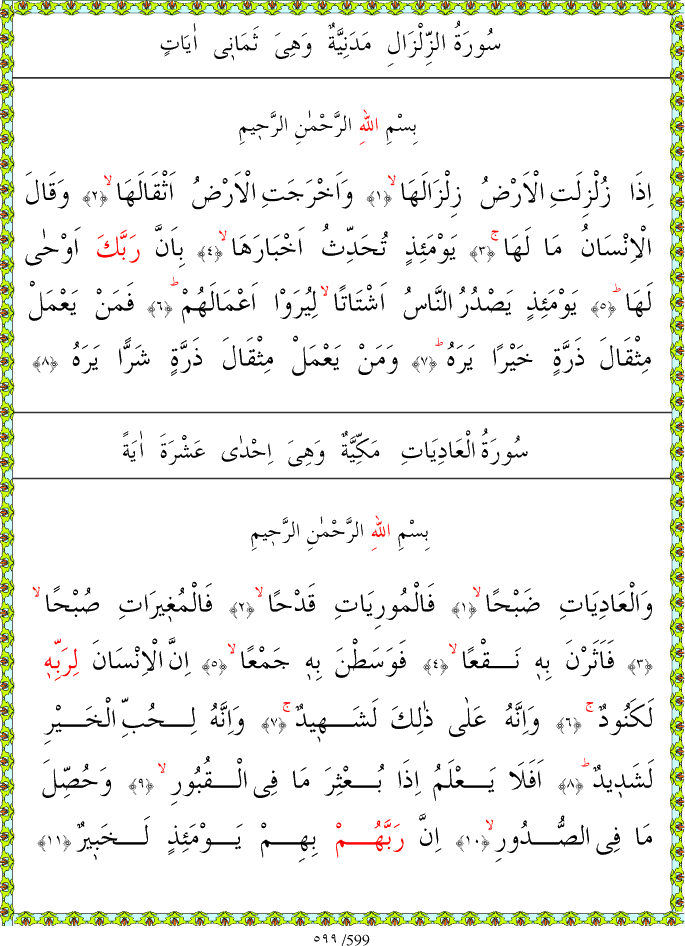 سُورَةُ الزِّلْزَالِ مَدَنِيَّةٌ وَهِيَ ثَمَانٖى اٰيَاتٍ
بِسْمِ اللهِ الرَّحْمٰنِ الرَّحٖيمِ
اِذَا زُلْزِلَتِ الْاَرْضُ زِلْزَالَهَاۙ ﴿١﴾ وَاَخْرَجَتِ الْاَرْضُ اَثْقَالَهَاۙ ﴿٢﴾ وَقَالَ
الْاِنْسَانُ مَا لَهَاۚ ﴿٣﴾ يَوْمَئِذٍ تُحَدِّثُ اَخْبَارَهَاۙ ﴿٤﴾ بِاَنَّ رَبَّكَ اَوْحٰى
لَهَاؕ ﴿٥﴾ يَوْمَئِذٍ يَصْدُرُ النَّاسُ اَشْتَاتًاۙ لِيُرَوْا اَعْمَالَهُمْؕ ﴿٦﴾ فَمَنْ يَعْمَلْ
مِثْقَالَ ذَرَّةٍ خَيْرًا يَرَهُؕ ﴿٧﴾ وَمَنْ يَعْمَلْ مِثْقَالَ ذَرَّةٍ شَرًّا يَرَهُ ﴿٨﴾
سُورَةُ الْعَادِيَاتِ مَكِّيَّةٌ وَهِيَ اِحْدٰى عَشْرَةَ اٰيَةً
بِسْمِ اللهِ الرَّحْمٰنِ الرَّحٖيمِ
وَالْعَادِيَاتِ ضَبْحًاۙ ﴿١﴾ فَالْمُورِيَاتِ قَدْحًاۙ ﴿٢﴾ فَالْمُغٖيرَاتِ صُبْحًاۙ
﴿٣﴾ فَاَثَرْنَ بِهٖ نَقْعًاۙ ﴿٤﴾ فَوَسَطْنَ بِهٖ جَمْعًاۙ ﴿٥﴾ اِنَّ الْاِنْسَانَ لِرَبِّهٖ
لَكَنُودٌۚ ﴿٦﴾ وَاِنَّهُ عَلٰى ذٰلِكَ لَشَهٖيدٌۚ ﴿٧﴾ وَاِنَّهُ لِحُبِّ الْخَيْرِ
لَشَدٖيدٌؕ ﴿٨﴾ اَفَلَا يَعْلَمُ اِذَا بُعْثِرَ مَا فِى الْقُبُورِۙ ﴿٩﴾ وَحُصِّلَ
مَا فِى الصُّدُورِۙ ﴿١٠﴾ اِنَّ رَبَّهُمْ بِهِمْ يَوْمَئِذٍ لَخَبٖيرٌ ﴿١١﴾
٥٩٩ /599